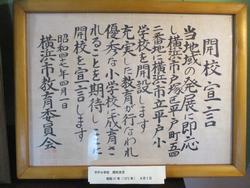 開校宣言
当地域の発展に即応
し横浜市戸塚区平戸町五四
二番地に横浜市立平戸小
学校を開設します
充実した教育が行なわれ
優秀な小学校に成育さ
れることを期待しここに
開校を宣言します
昭和四七年四月一日
横浜市教育委員会
平戸小学校 開校宣言